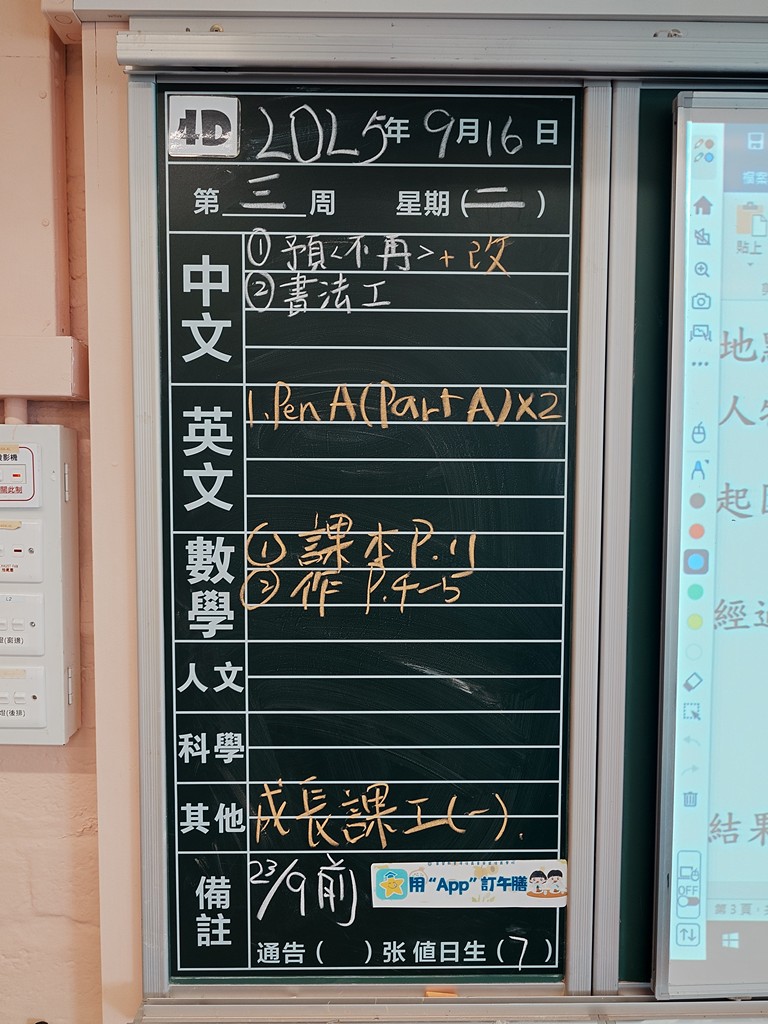 4D 2025年9月16日
第三周 星期(二)
中文
①預<不再>+改
②書法工
英文
1.Pen A(Part A)X2
數學
①課本P.11
②作 P.4-5
人文
科學
其他
成長課工(一).
備註
23/9前
用“App”訂午膳
通告( )张 值日生(7)
地
人
起
經
結果
貼上
OFF
第3頁,